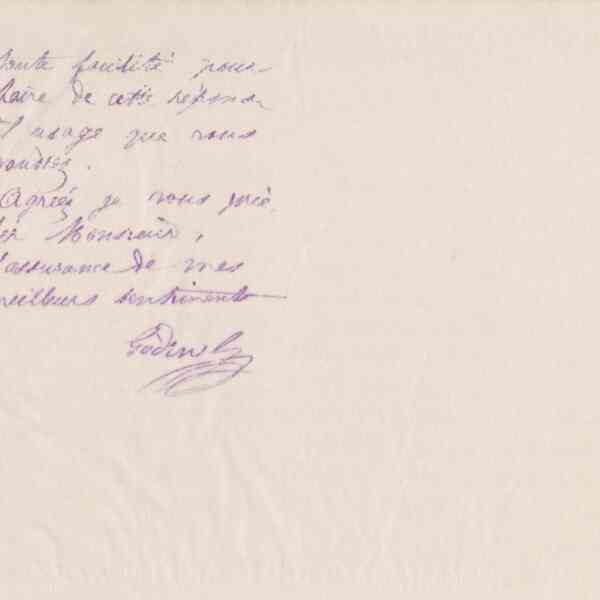 toute facilité pour
faire de cette réponse
l'usage que vous
voudrez.
Agréez je vous prie,
Monsieur,
l'assurance de mes
meilleurs sentiments
Godin